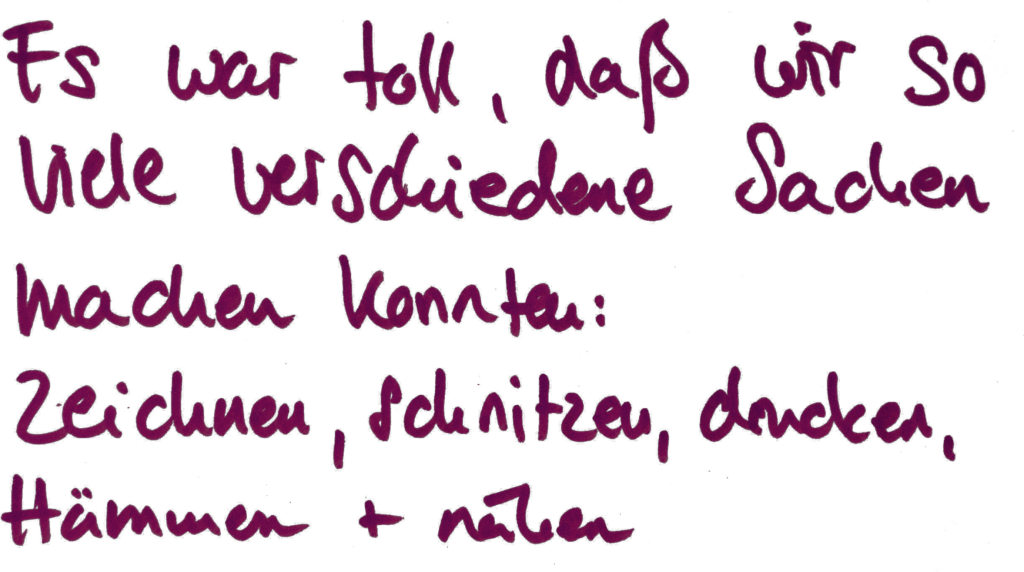 Es war toll, daß wir so
viele verschiedene Sachen
machen konnten:
Zeichnen, schnitzen, drucken,
Hämmen + nähen